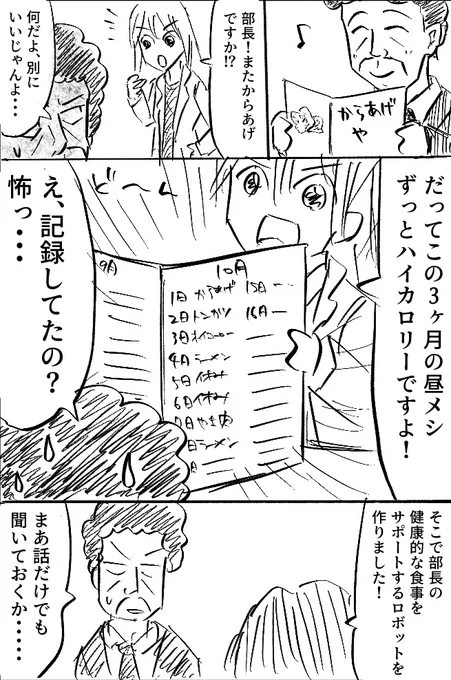 からあげ
や
部長！またからあげ
ですか！？
何だよ、別に
いいじゃんよ・・・
だってこの3ヶ月の昼メシ
ずっとハイカロリーですよ！
どーん
9月
10月
1日 からあげ
2日 トンカツ
3日
4日 ラーメン
5日 休み
6日 休み
日 やき肉
日 ラーメン
15日
16日
え、記録してたの？
怖っ・・・
そこで部長の
健康的な食事を
サポートするロボットを
作りました！
まあ話だけでも
聞いておくか・・・・・